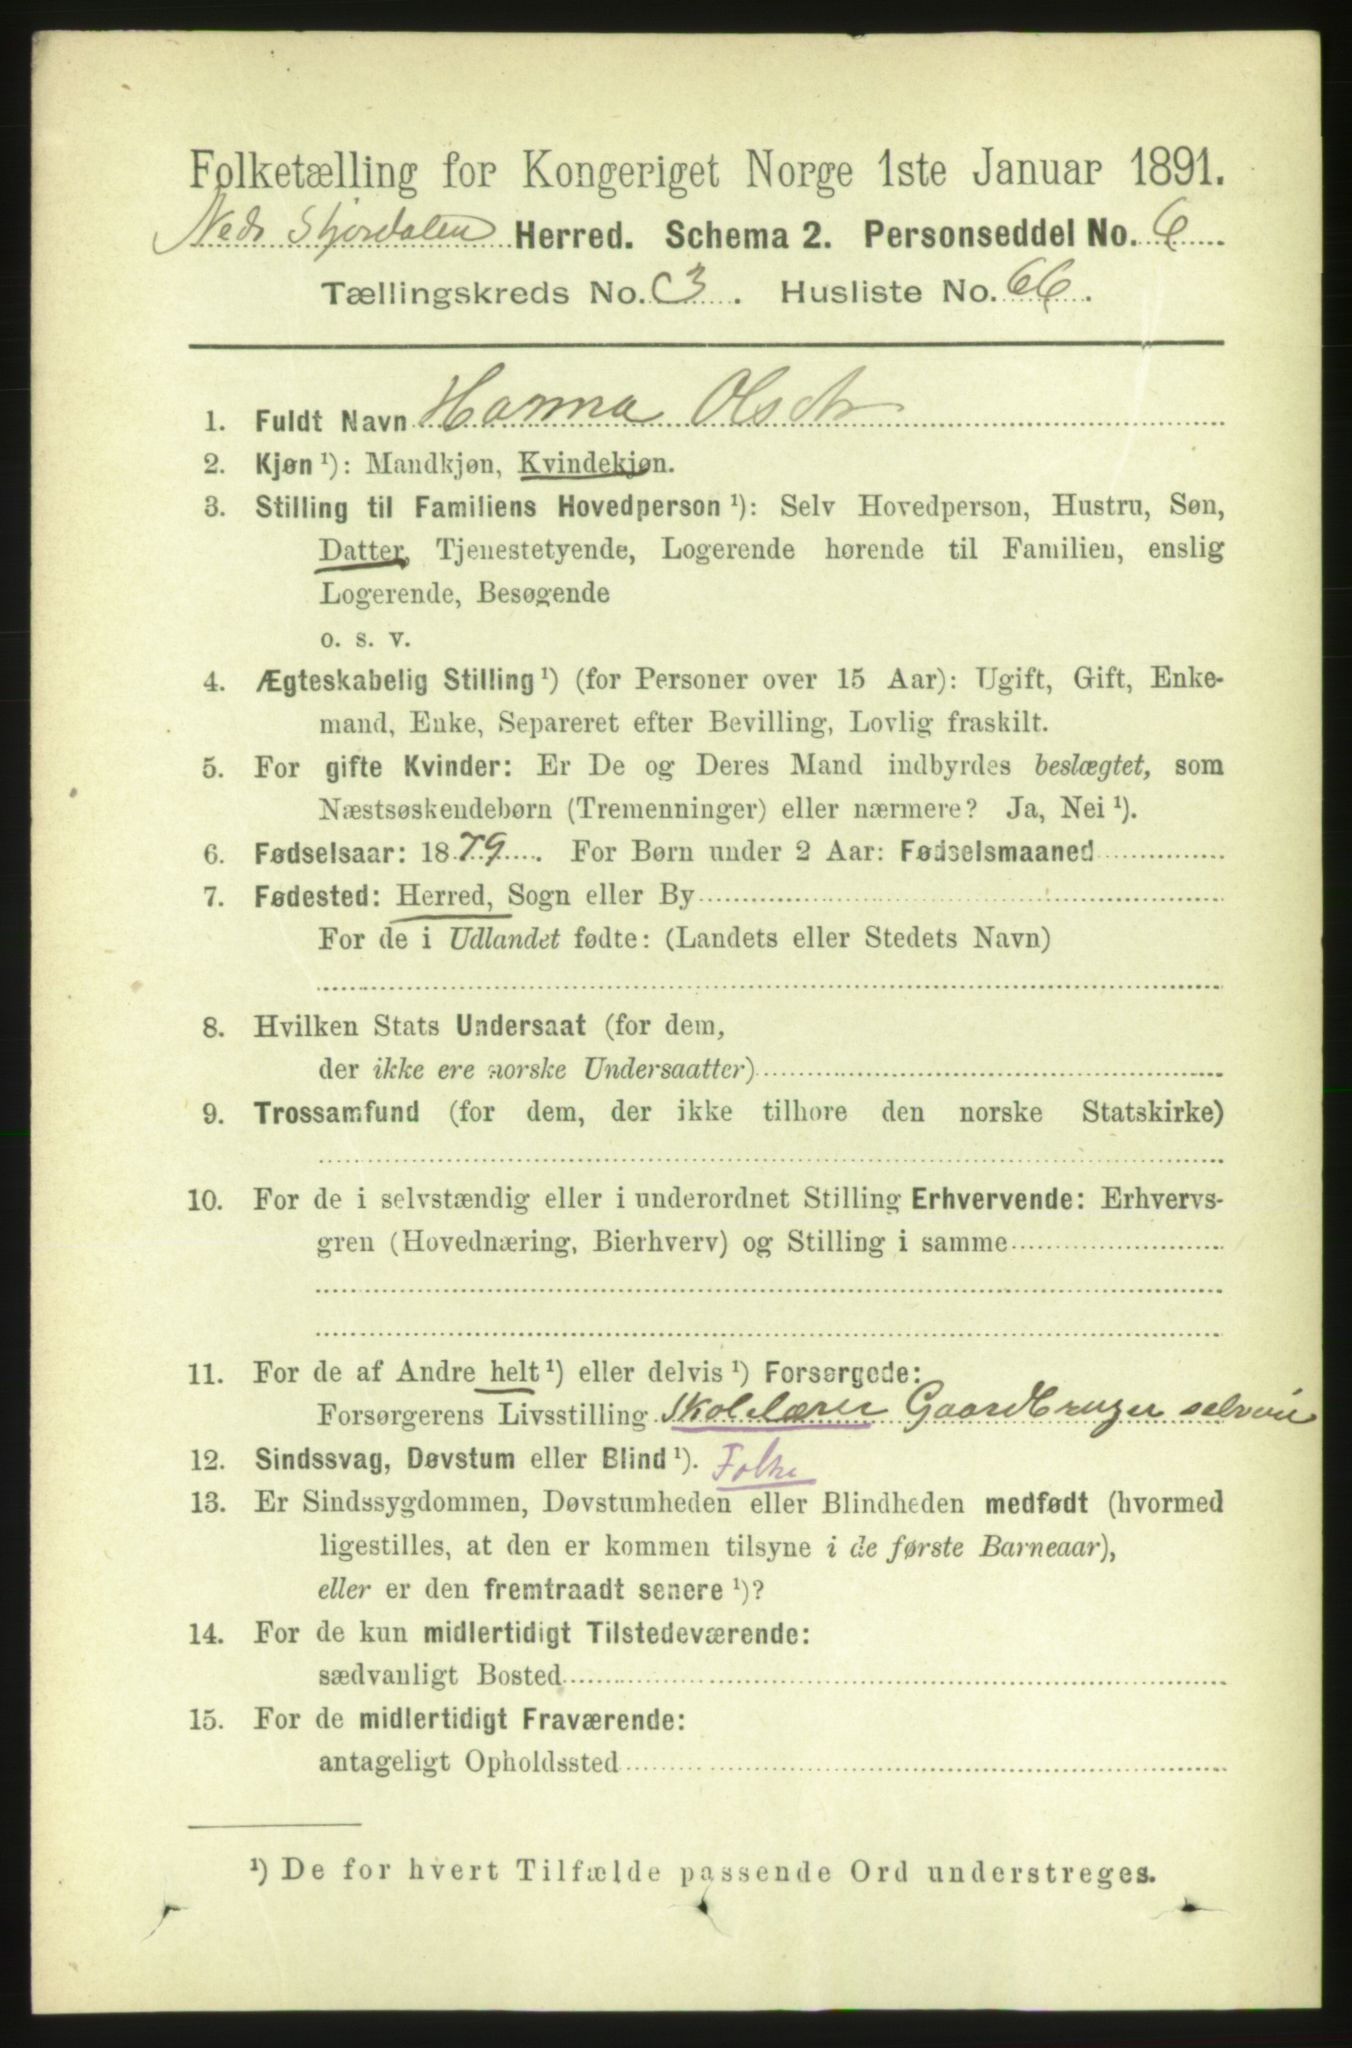 Folketælling for Kongeriget Norge 1ste Januar 1891.
Nedr Stjørdalen Herred. Schema 2. Personseddel No. 6
Tællingskreds No. 3. Husliste No. 66.
1. Fuldt Navn Hanna Olsdtr
2. Kjøn ¹): Mandkjøn, Kvindekjøn.
3. Stilling til Familiens Hovedperson ¹): Selv Hovedperson, Hustru, Søn,
Datter, Tjenestetyende, Logerende hørende til Familien, enslig
Logerende, Besøgende
o. s. v.
4. Ægteskabelig Stilling ¹) (for Personer over 15 Aar): Ugift, Gift, Enke-
mand, Enke, Separeret efter Bevilling, Lovlig fraskilt.
5. For gifte Kvinder: Er De og Deres Mand indbyrdes beslægtet, som
Næstsøskendebørn (Tremenninger) eller nærmere? Ja, Nei ¹).
6. Fødselsaar: 1879. For Børn under 2 Aar: Fødselsmaaned
7. Fødested: Herred, Sogn eller By
For de i Udlandet fødte: (Landets eller Stedets Navn)
8. Hvilken Stats Undersaat (for dem,
der ikke ere norske Undersaatter)
9. Trossamfund (for dem, der ikke tilhøre den norske Statskirke)
10. For de i selvstændig eller i underordnet Stilling Erhvervende: Erhvervs-
gren (Hovednæring, Bierhverv) og Stilling i samme
11. For de af Andre helt ¹) eller delvis ¹) Forsørgede:
Forsørgerens Livsstilling Skolelærer Gaardbruger selveier
12. Sindssvag, Døvstum eller Blind ¹). Folke
13. Er Sindssygdommen, Døvstumheden eller Blindheden medfødt (hvormed
ligestilles, at den er kommen tilsyne i de første Barneaar),
eller er den fremtraadt senere ¹)?
14. For de kun midlertidigt Tilstedeværende:
sædvanligt Bosted
15. For de midlertidigt Fraværende:
antageligt Opholdssted
¹) De for hvert Tilfælde passende Ord understreges.